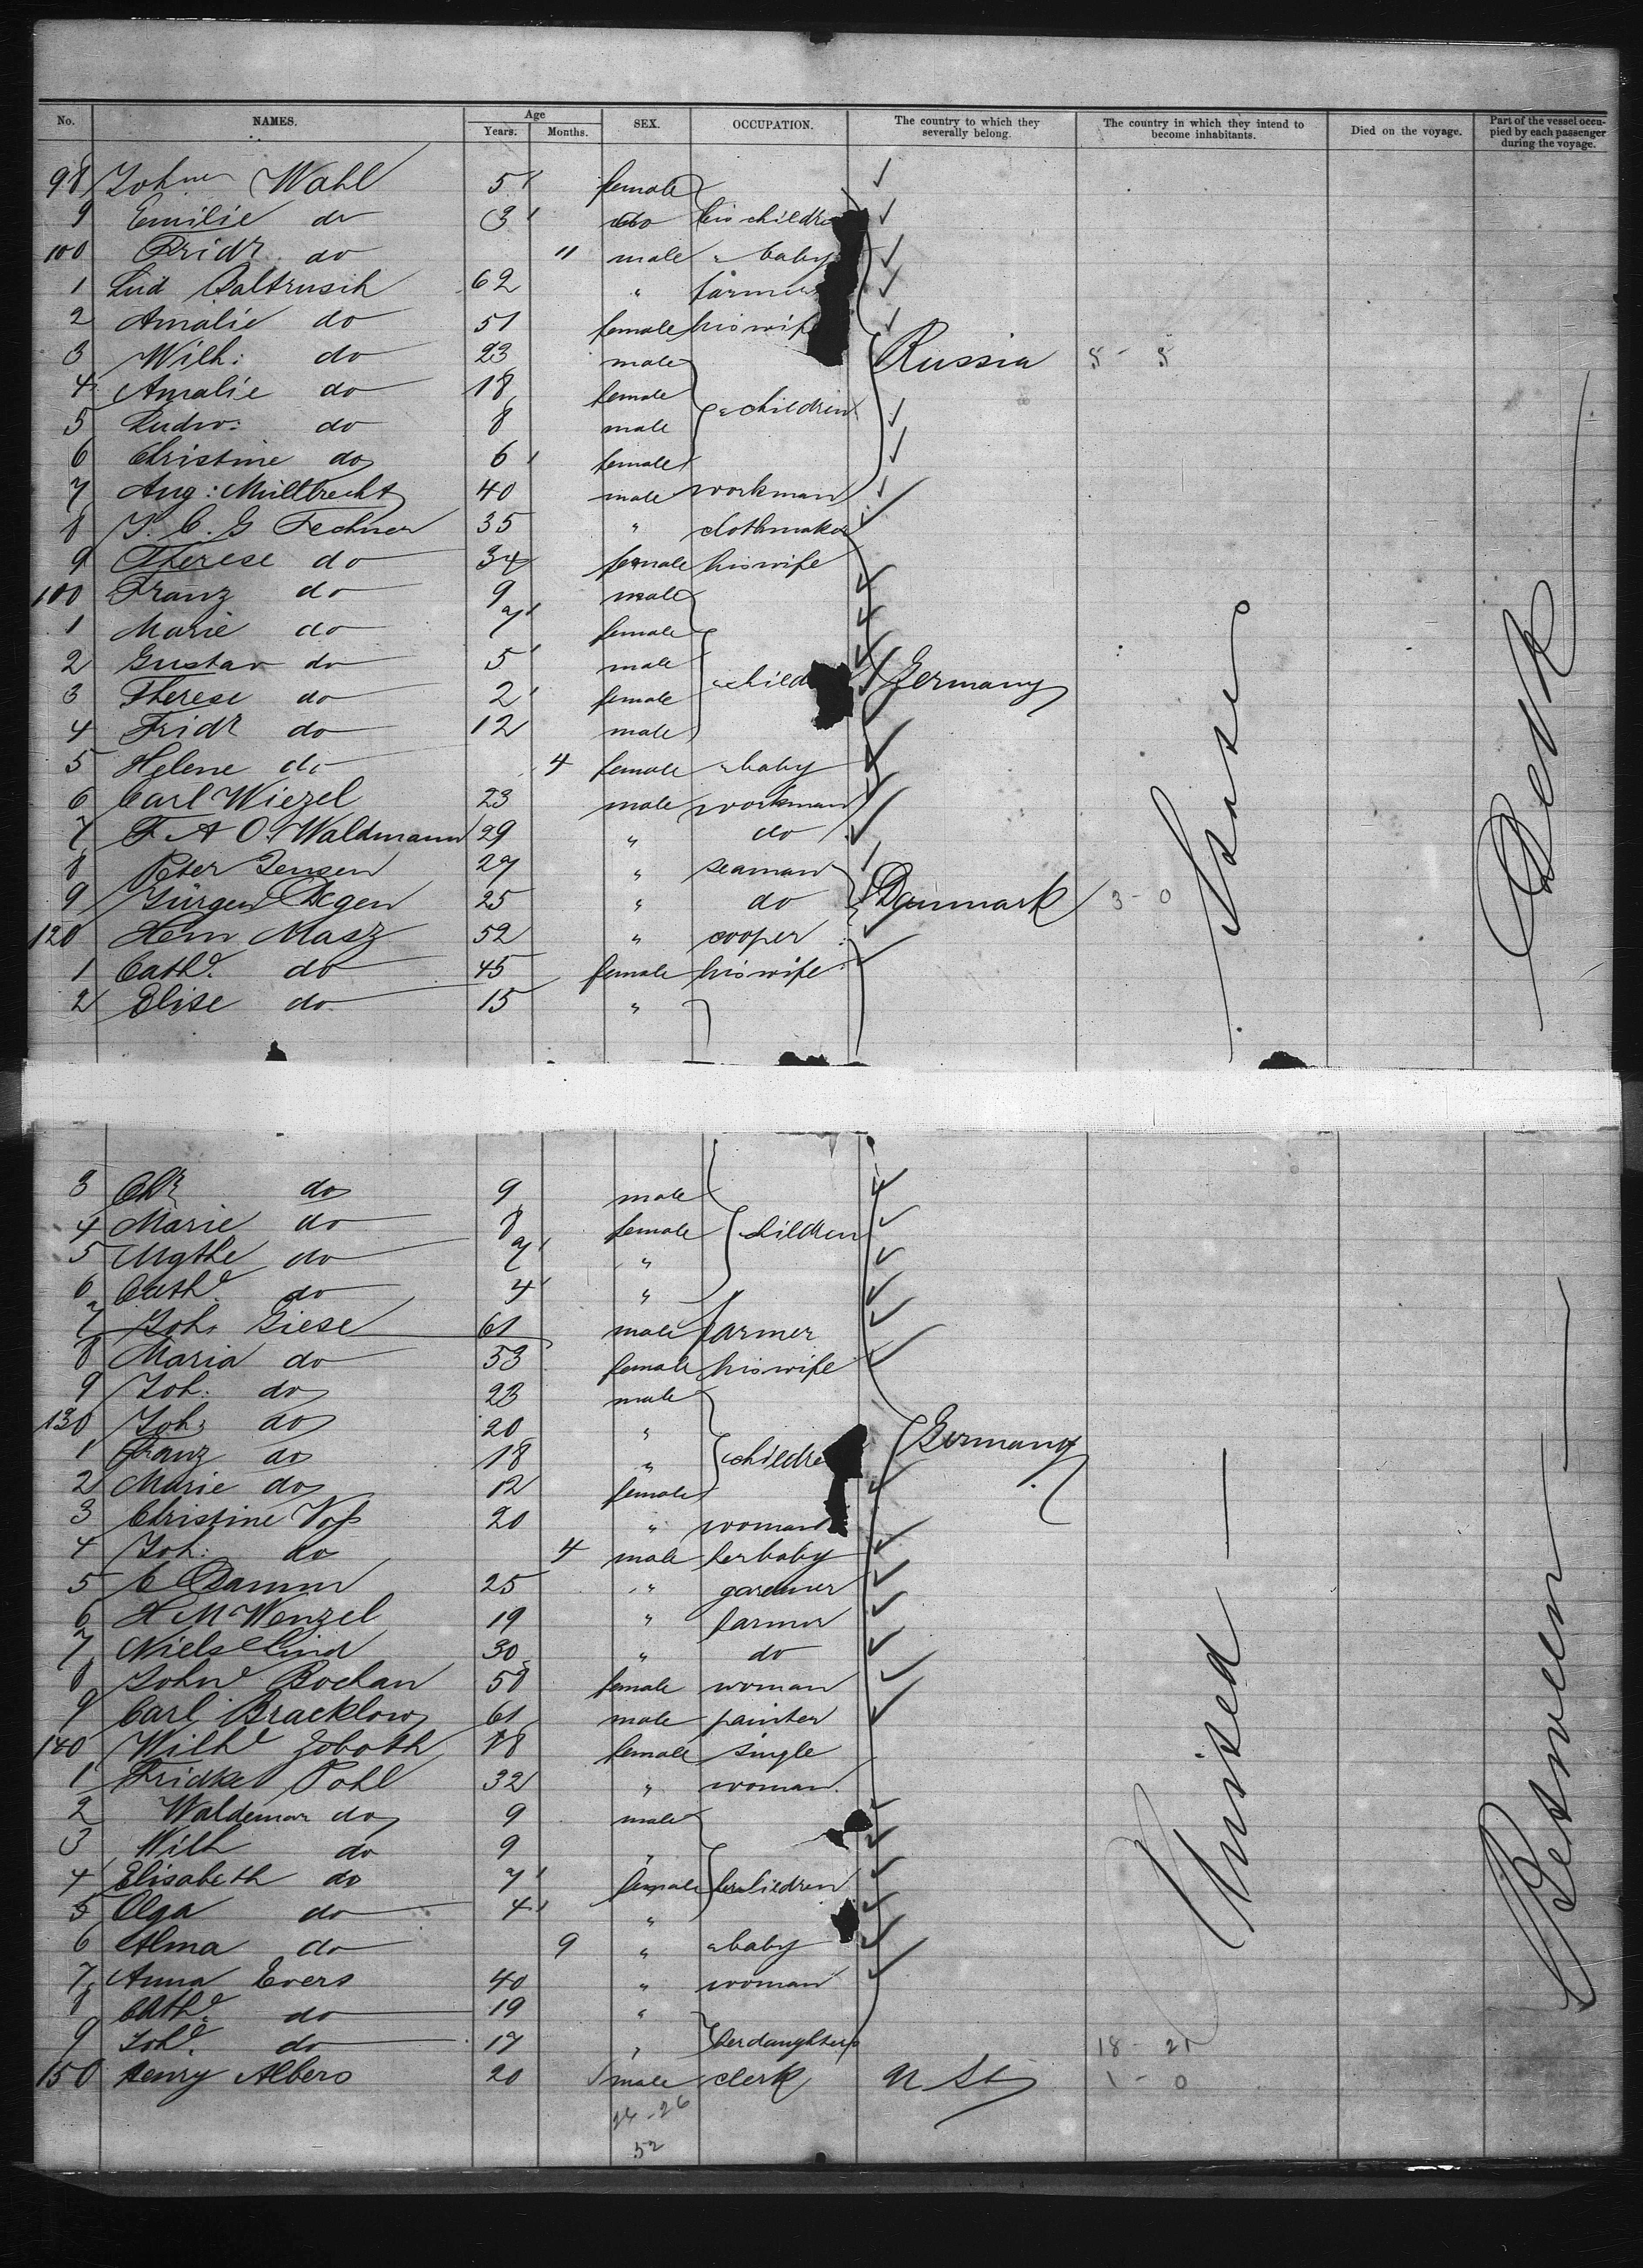 No. NAMES. Age Years. Months. SEX. OCCUPATION. The country to which they severally belong. The country in which they intend to become inhabitants. Died on the voyage. Part of the vessel occupied by each passenger during the voyage.
98 Wahl 5 female
9 Emilie do 3 do his children
100 Fridr do 11 male " baby
1 Lud Baltrusch 62 " farmer
2 Amalie do 51 female his wife
3 Wilh: do 23 male Russia 5 - 5
4 Amalie do 18 female
5 Ludw: do 8 male " children
6 Christine do 6 female
7 Aug: Millbrecht 40 male workman
8 J. C. G Fechner 35 " clothmaker
9 Therese do 34 female his wife
100 Franz do 9 male
1 Marie do 7 female
2 Gustav do 5 male
3 Therese do 2 female " child Germany
4 Fridr do 12 male
5 Helene do 4 female " baby
6 Carl Wiezel 23 male workman
7 F A O. Waldmann 29 " do
8 Peter Jensen 27 " seaman
9 Jürgen Degen 25 " do Danmark 3 - 0
120 Herm Masz 52 " cooper
1 Cathe. do 45 female his wife
2 Elise do 15 "
3 Chr do 9 male
4 Marie do 8 female children
5 Mgthe do 7 "
6 Cathe. do 4 "
7 Joh. Giese 61 male farmer
8 Maria do 53 female his wife
9 Joh: do 23 male
130 Joh: do 20 "
1 Franz do 18 " children Germany
2 Marie do 12 female
3 Christine Voß 20 " woman
4 Joh: do 4 male her baby
5 C Damm 25 " gardener
6 H M Wenzel 19 " farmer
7 Niels Lind 30 " do
8 Johne Bochan 58 female woman
9 Carl Bracklow 61 male painter
140 Wilhe Zoboth 18 female single
1 Fridke Pohl 32 " woman
2 Waldemar do 9 male
3 Wilh do 9 "
4 Elisabeth do 7 female her children
5 Olga do 4 "
6 Alma do 9 " " baby
7 Anna Evers 40 " woman
8 Cathe. do 19 "
9 Johe. do 17 " her daughters 18 - 21
150 Henry Albers 20 male clerk U. St 1 - 0
26 - 26
52
United States
Between Deck